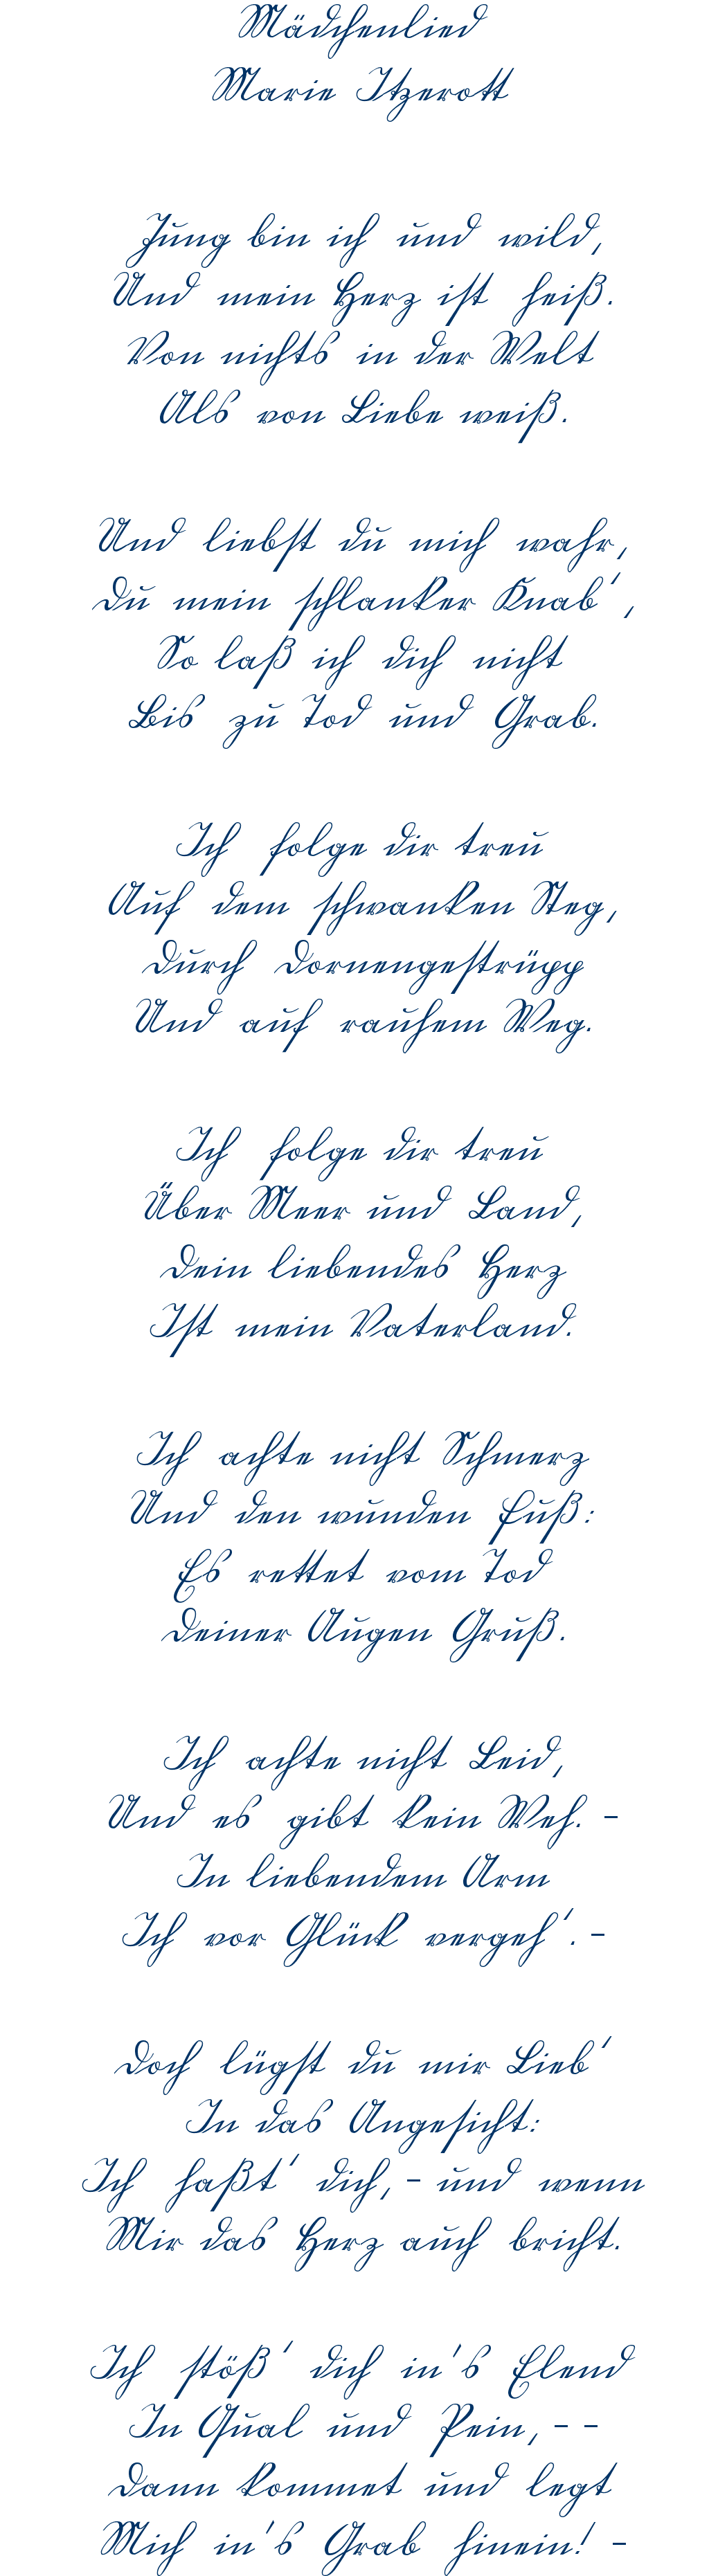 Mädchenlied
Marie Itzerott
Jung bin ich und wild,
Und mein Herz ist heiß.
Von nichts in der Welt
Als von Liebe weiß.
Und liebst du mich wahr,
Du mein schlanker Knab',
So laß ich dich nicht
Bis zu Tod und Grab.
Ich folge dir treu
Auf dem schwanken Steg,
Durch Dornengestrüpp
Und auf rauhem Weg.
Ich folge dir treu
Über Meer und Land,
Dein liebendes Herz
Ist mein Vaterland.
Ich achte nicht Schmerz
Und den wunden Fuß:
Es rettet vom Tod
Deiner Augen Gruß.
Ich achte nicht Leid,
Und es gibt kein Weh. -
In liebendem Arm
Ich vor Glück vergeh'. -
Doch lügst du mir Lieb'
In das Angesicht:
Ich haßt' dich, - und wenn
Mir das Herz auch bricht.
Ich stöß' dich in's Elend
In Qual und Pein, - -
Dann kommet und legt
Mich in's Grab hinein! -